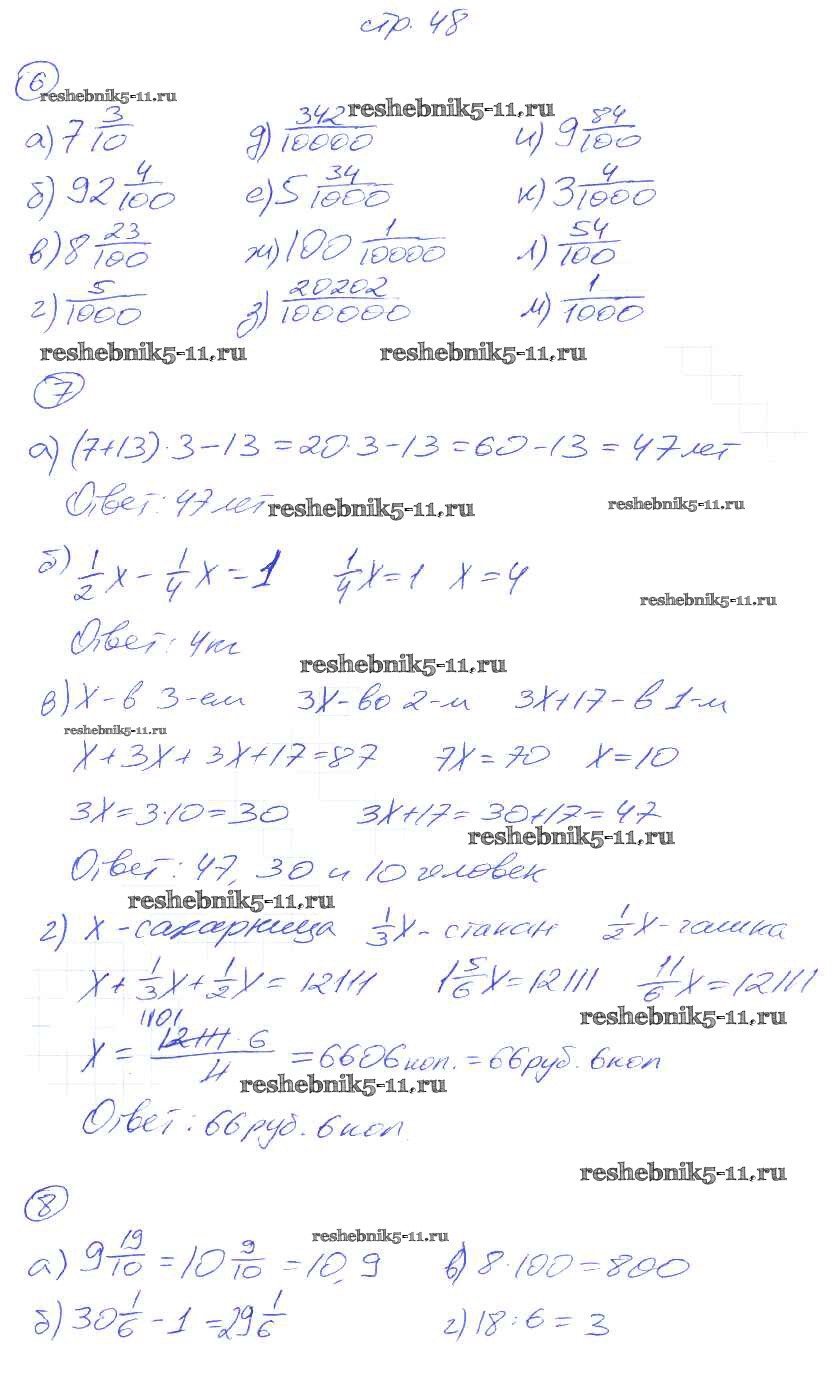 стр. 48
6
reshebnik5-11.ru
reshebnik5-11.ru
а) 7 3/10 д) 342/10000 и) 9 84/100
б) 92 4/100 е) 5 34/1000 к) 3 4/1000
в) 8 23/100 ж) 100 1/10000 л) 54/100
г) 5/1000 з) 20202/100000 м) 1/1000
reshebnik5-11.ru reshebnik5-11.ru
7
а) (7+13)·3-13=20·3-13=60-13=47 лет
Ответ: 47 лет reshebnik5-11.ru reshebnik5-11.ru
б) 1/2 x - 1/4 x = 1 1/4 x = 1 x = 4
reshebnik5-11.ru
Ответ: 4 кг
reshebnik5-11.ru
в) x - в 3-ем 3x - во 2-м 3x+17 - в 1-м
reshebnik5-11.ru
x+3x+3x+17=87 7x=70 x=10
3x=3·10=30 3x+17=30+17=47
reshebnik5-11.ru
Ответ: 47, 30 и 10 человек
reshebnik5-11.ru
г) x - сахарница 1/3 x - стакан 1/2 x - чашка
x + 1/3 x + 1/2 x = 12111 1 5/6 x = 12111 11/6 x = 12111
reshebnik5-11.ru
1101
x = 12111·6/11 = 6606 коп. = 66 руб. 6 коп
reshebnik5-11.ru
Ответ: 66 руб. 6 коп.
reshebnik5-11.ru
8
reshebnik5-11.ru
а) 9 19/10 = 10 9/10 = 10,9 в) 8·100=800
б) 30 1/6 - 1 = 29 1/6 г) 18:6=3